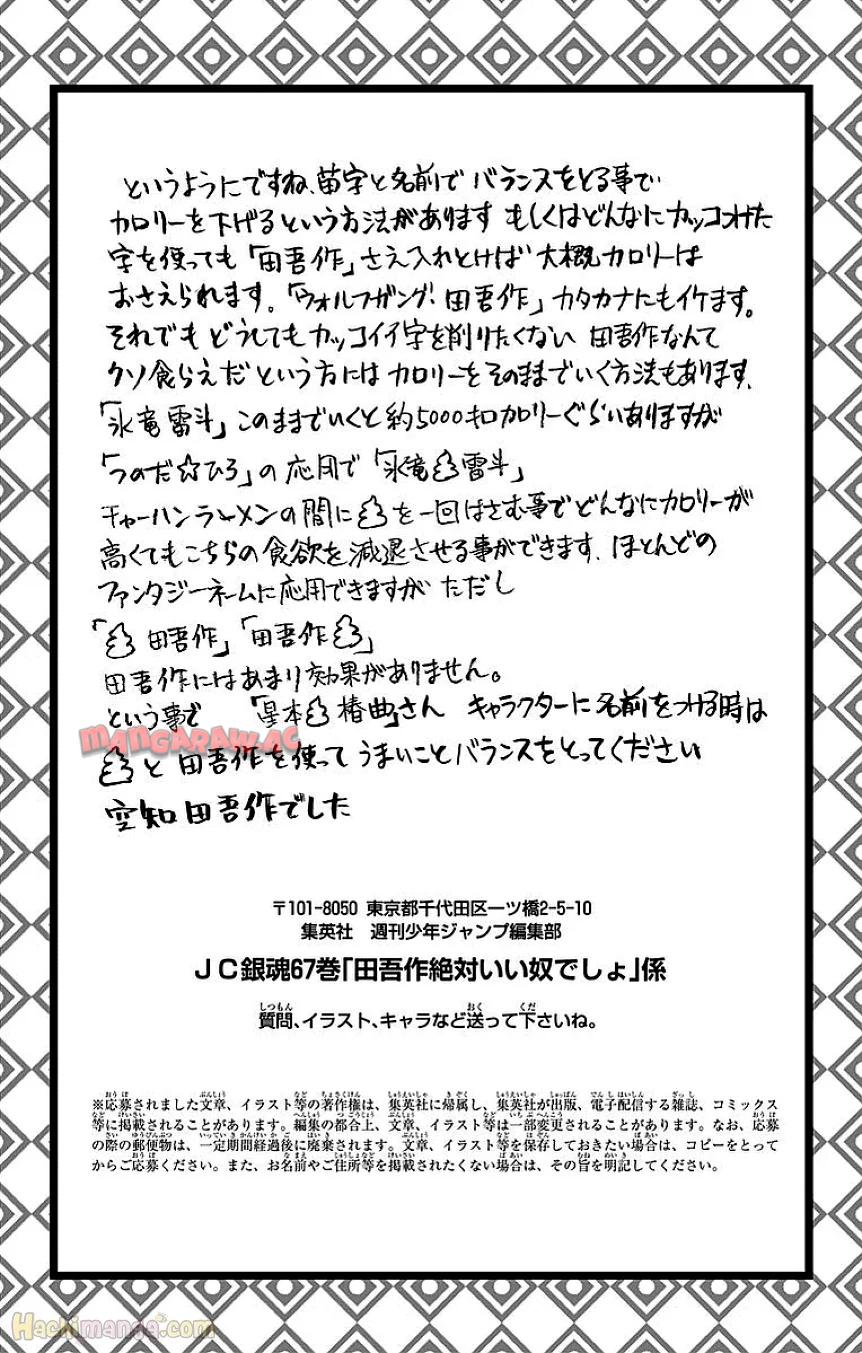 というようにですね、苗字と名前でバランスをとる事で
カロリーを下げるという方法があります もしくはどんなにカッコつけた
字を使っても「田吾作」さえ入れとけば大概カロリーは
おさえられます。「ウォルフガング・田吾作」カタカナにもイケます。
それでもどうしてもカッコイイ字を削りたくない 田吾作なんて
クソ食らえだという方にはカロリーをそのままでいく方法もあります、
「氷竜雷斗」このままでいくと約5000キロカロリーぐらいありますが
「つのだ☆ひろ」の応用で「氷竜💩雷斗」
チャーハンラーメンの間に💩を一回はさむ事でどんなにカロリーが
高くてもこちらの食欲を減退させる事ができます、ほとんどの
ファンタジーネームに応用できますが ただし
「💩田吾作」「田吾作💩」
田吾作にはあまり効果がありません。
という事で 「星本💩椿曲」さん キャラクターに名前をつける時は
💩と田吾作を使って うまいことバランスをとってください
空知田吾作でした
MANGARAWAC
〒101-8050 東京都千代田区一ツ橋2-5-10
集英社 週刊少年ジャンプ編集部
JC銀魂67巻「田吾作絶対いい奴でしょ」係
質問、イラスト、キャラなど送って下さいね。
※応募されました文章、イラスト等の著作権は、集英社に帰属し、集英社が出版、電子配信する雑誌、コミックス
等に掲載されることがあります。編集の都合上、文章、イラスト等は一部変更されることがあります。なお、応募
の際の郵便物は、一定期間経過後に廃棄されます。文章、イラスト等を保存しておきたい場合は、コピーをとって
からご応募ください。また、お名前やご住所等を掲載されたくない場合は、その旨を明記してください。
Hachimanga.com